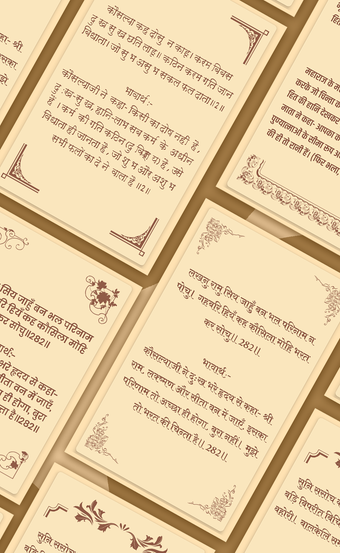 कौसल्या कह दोसु न काहू। करम बिबस
दु ख सु ख छति लाहू॥ कठिन करम गति जान
बिधाता। जो सु भ असु भ सकल फल दाता॥2॥
भावार्थ:-
कौसल्याजी ने कहा- किसी का दोष नहीं है,
दुः ख-सु ख, हानि-लाभ सब कर्म के अधीन
हैं। कर्म की गति कठिन (दु र्विज्ञे य) है, उसे
विधाता ही जानता है, जो शु भ और अशु भ
सभी फलों का दे ने वाला है॥2॥
महाराज के म
करके जो चिन्ता क
हित की हानि देखकर
माता ने कहा- आपका क
पुण्यात्माओं के सीमा रूप अ
की ही तो रानी हैं। (फिर भला,
सिय जाहुँ बन भल परिनाम
रि हियँ कह कौसिला मोहि
कर सोचु॥282॥
भरे हृदय से कहा-
सीता वन में जाएँ,
ही होगा, बुरा
ता है॥282॥
लखनु रामु सिय जाहुँ बन भल परिनाम न
पोचु। गहबरि हियँ कह कौसिला मोहि भरत
कर सोचु॥282॥
भावार्थ:-
कौसल्याजी ने दुःख भरे हृदय से कहा- श्री
राम, लक्ष्मण और सीता वन में जाएँ, इसका
परिणाम तो अच्छा ही होगा, बुरा नहीं। मुझे
तो भरत की चिन्ता है॥282॥
सुनि ससोच
बड़ि बिपरीत बि
बहोरी। बालकेलि